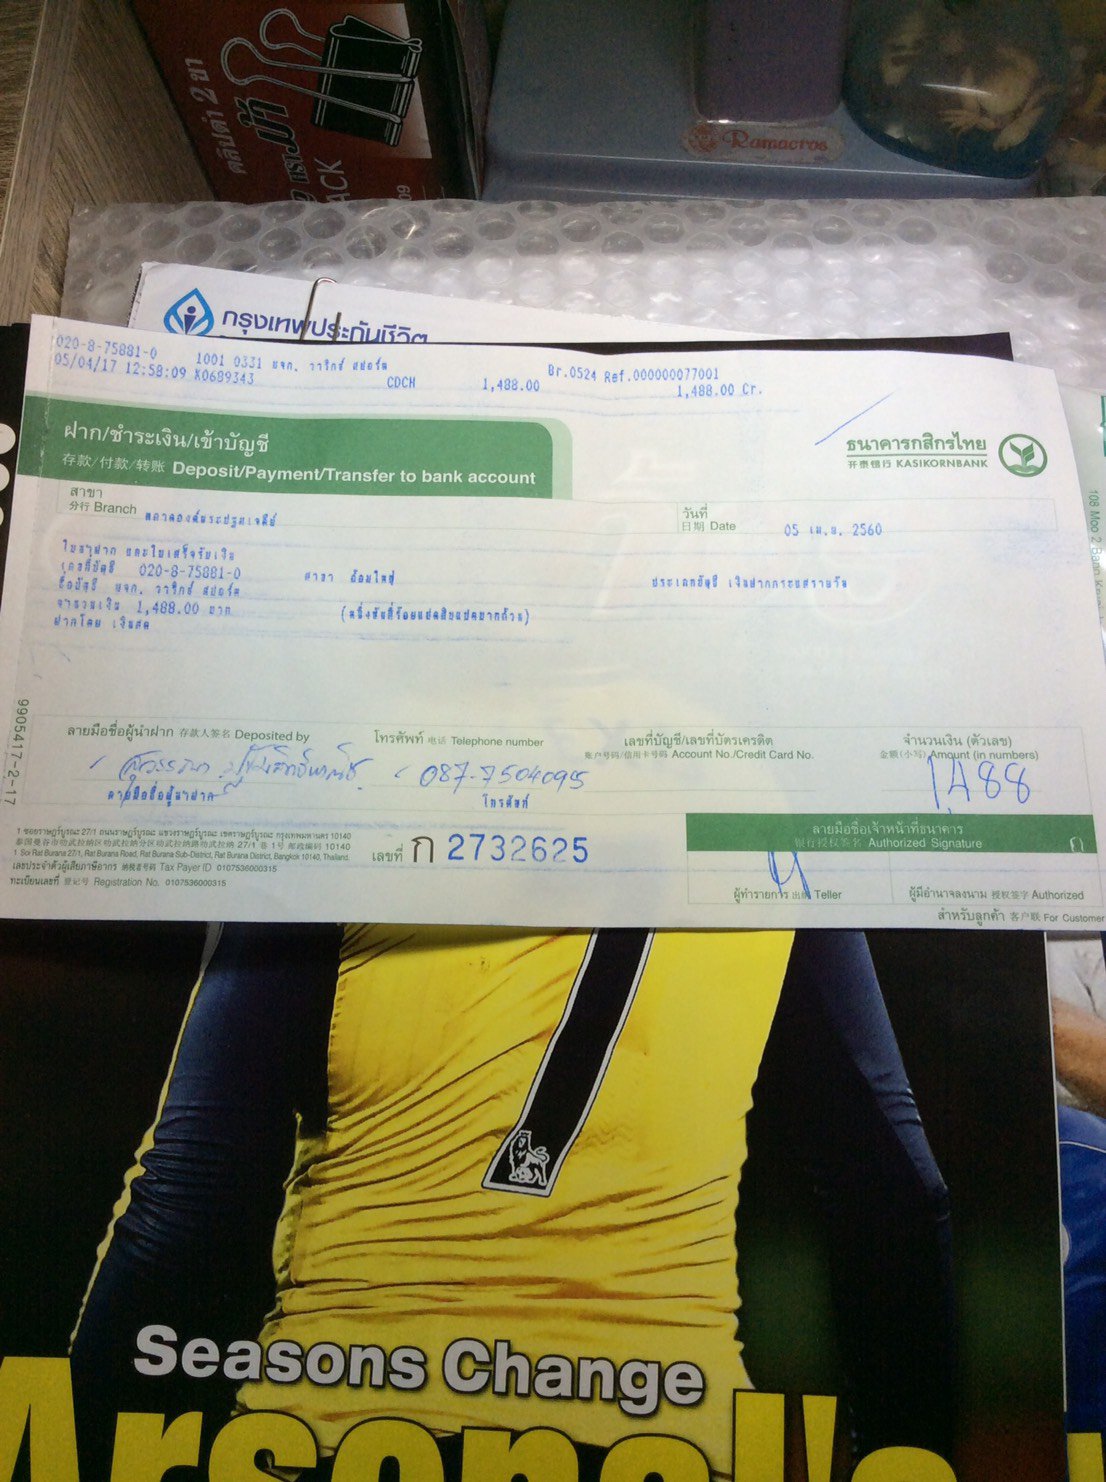 คลิปดำ 2 ขา
ตราม้า
ACK
Ramacros
กรุงเทพประกันชีวิต
020-8-75881-0 1001 0331 หจก. วาริกซ์ สปอร์ต Br.0524 Ref.000000077001
05/04/17 12:58:09 K0689343 CDCH 1,488.00 1,488.00 Cr.
ฝาก/ชำระเงิน/เข้าบัญชี
存款/付款/转账 Deposit/Payment/Transfer to bank account
ธนาคารกสิกรไทย
开泰银行 KASIKORNBANK
สาขา
分行 Branch ตลาดองค์พระปฐมเจดีย์
วันที่
日期 Date 05 เม.ย. 2560
ใบฝาก และใบเสร็จรับเงิน
เลขที่บัญชี 020-8-75881-0 สาขา อ้อมใหญ่ ประเภทบัญชี เงินฝากกระแสรายวัน
ชื่อบัญชี หจก. วาริกซ์ สปอร์ต
จำนวนเงิน 1,488.00 บาท (หนึ่งพันสี่ร้อยแปดสิบแปดบาทถ้วน)
ฝากโดย เงินสด
9905417-2-17
108 Moo 2 Bann
ลายมือชื่อผู้นำฝาก 存款人签名 Deposited by โทรศัพท์ 电话 Telephone number เลขที่บัญชี/เลขที่บัตรเครดิต จำนวนเงิน (ตัวเลข)
账户号码/信用卡号码 Account No./Credit Card No. 金额(小写) Amount (in numbers)
สุวรรณา 087-7504095 1,488
ลายมือชื่อผู้นำฝาก โทรศัพท์
1 ซอยราษฎร์บูรณะ 27/1 ถนนราษฎร์บูรณะ แขวงราษฎร์บูรณะ เขตราษฎร์บูรณะ กรุงเทพมหานคร 10140
泰国曼谷市叻武拉纳区叻武拉纳分区叻武拉纳路叻武拉纳 27/1 巷 1号 邮政编码 10140
1 Soi Rat Burana 27/1, Rat Burana Road, Rat Burana Sub-District, Rat Burana District, Bangkok 10140, Thailand.
เลขประจำตัวผู้เสียภาษีอากร 纳税者号码 Tax Payer ID 0107536000315
ทะเบียนเลขที่ 登记号 Registration No. 0107536000315
เลขที่ ก 2732625
ลายมือชื่อเจ้าหน้าที่ธนาคาร
银行授权签名 Authorized Signature
ผู้ทำรายการ Teller ผู้มีอำนาจลงนาม 授权签字 Authorized
สำหรับลูกค้า 客户联 For Customer
Seasons Change
Arsenal's